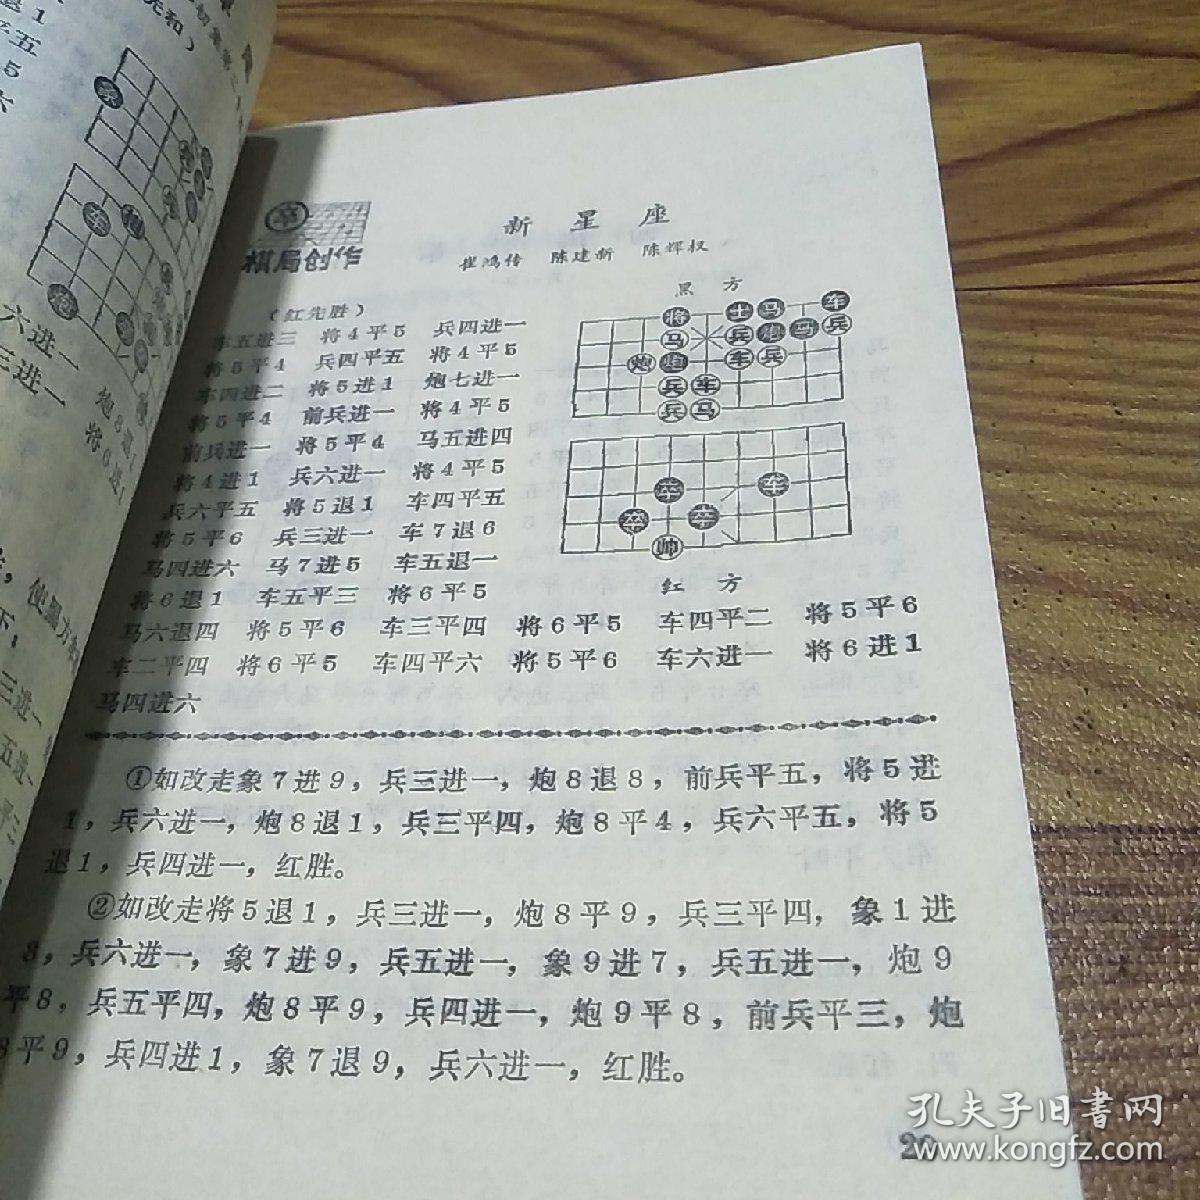 棋局创作
新星座
崔鸿传 陈建新 陈辉权
(红先胜)
车五进三 将4平5 兵四进一
将5平4 兵四平五 将4平5
车四进二 将5进1 炮七进一
将5平4 前兵进一 将4平5
前兵进一 将5平4 马五进四
将4进1 兵六进一 将4平5
兵六平五 将5退1 车四平五
将5平6 兵三进一 车7退6
马四进六 马7进5 车五退一
将6退1 车五平三 将6平5
马六退四 将5平6 车三平四 将6平5 车四平二 将5平6
车二平四 将6平5 车四平六 将5平6 车六进一 将6进1
马四进六
黑方
将 士 马 车
马 兵 炮 马 兵
炮 炮 车 兵
兵 车
兵 马
卒 车
卒 卒
帅
红方
①如改走象7进9，兵三进一，炮8退8，前兵平五，将5进
1，兵六进一，炮8退1，兵三平四，炮8平4，兵六平五，将5
退1，兵四进一，红胜。
②如改走将5退1，兵三进一，炮8平9，兵三平四，象1进
3，兵六进一，象7进9，兵五进一，象9进7，兵五进一，炮9
平8，兵五平四，炮8平9，兵四进一，炮9平8，前兵平三，炮
8平9，兵四进1，象7退9，兵六进一，红胜。
孔夫子旧书网
www.kongfz.com